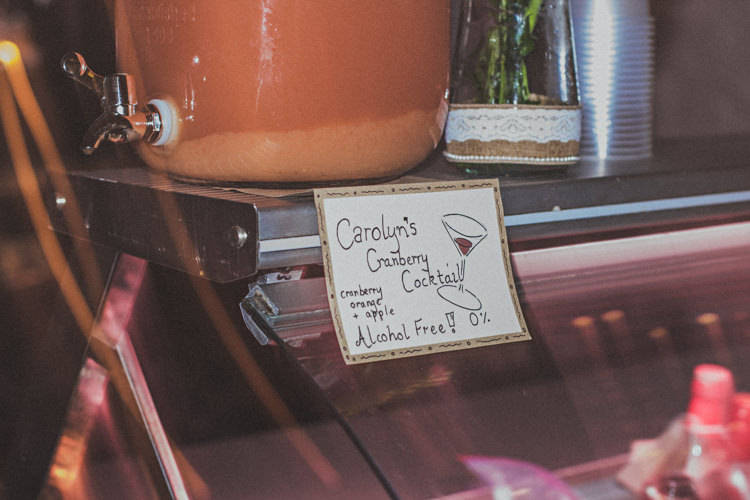 Established
Carolyn's
Cranberry
Cocktail
cranberry
orange
+ apple
Alcohol Free! 0%